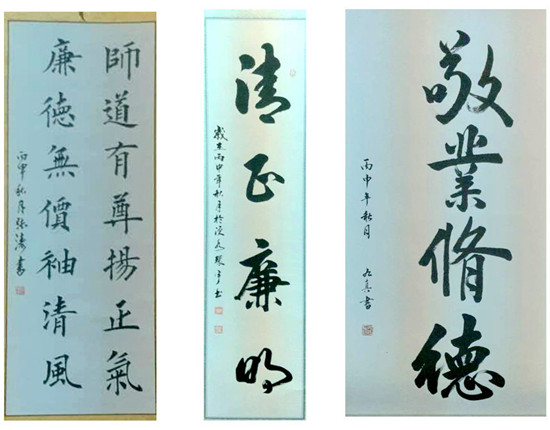 師道有尊揚正氣
廉德無價袖清風
丙申秋月張濤書
清正廉明
歲在丙申年秋月於
敬業脩德
丙申年秋月
書